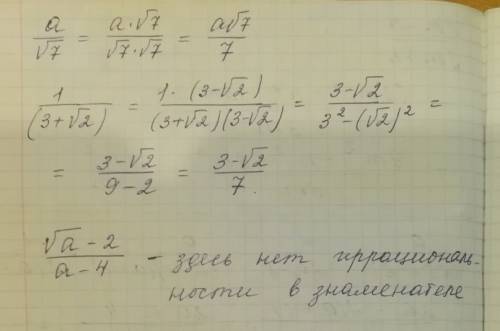 a/√7 = a·√7/√7·√7 = a√7/7
1/(3+√2) = 1·(3-√2)/(3+√2)(3-√2) = 3-√2/3²-(√2)² =
= 3-√2/9-2 = 3-√2/7.
√a-2/a-4 - здесь нет иррациональ-
ности в знаменателе